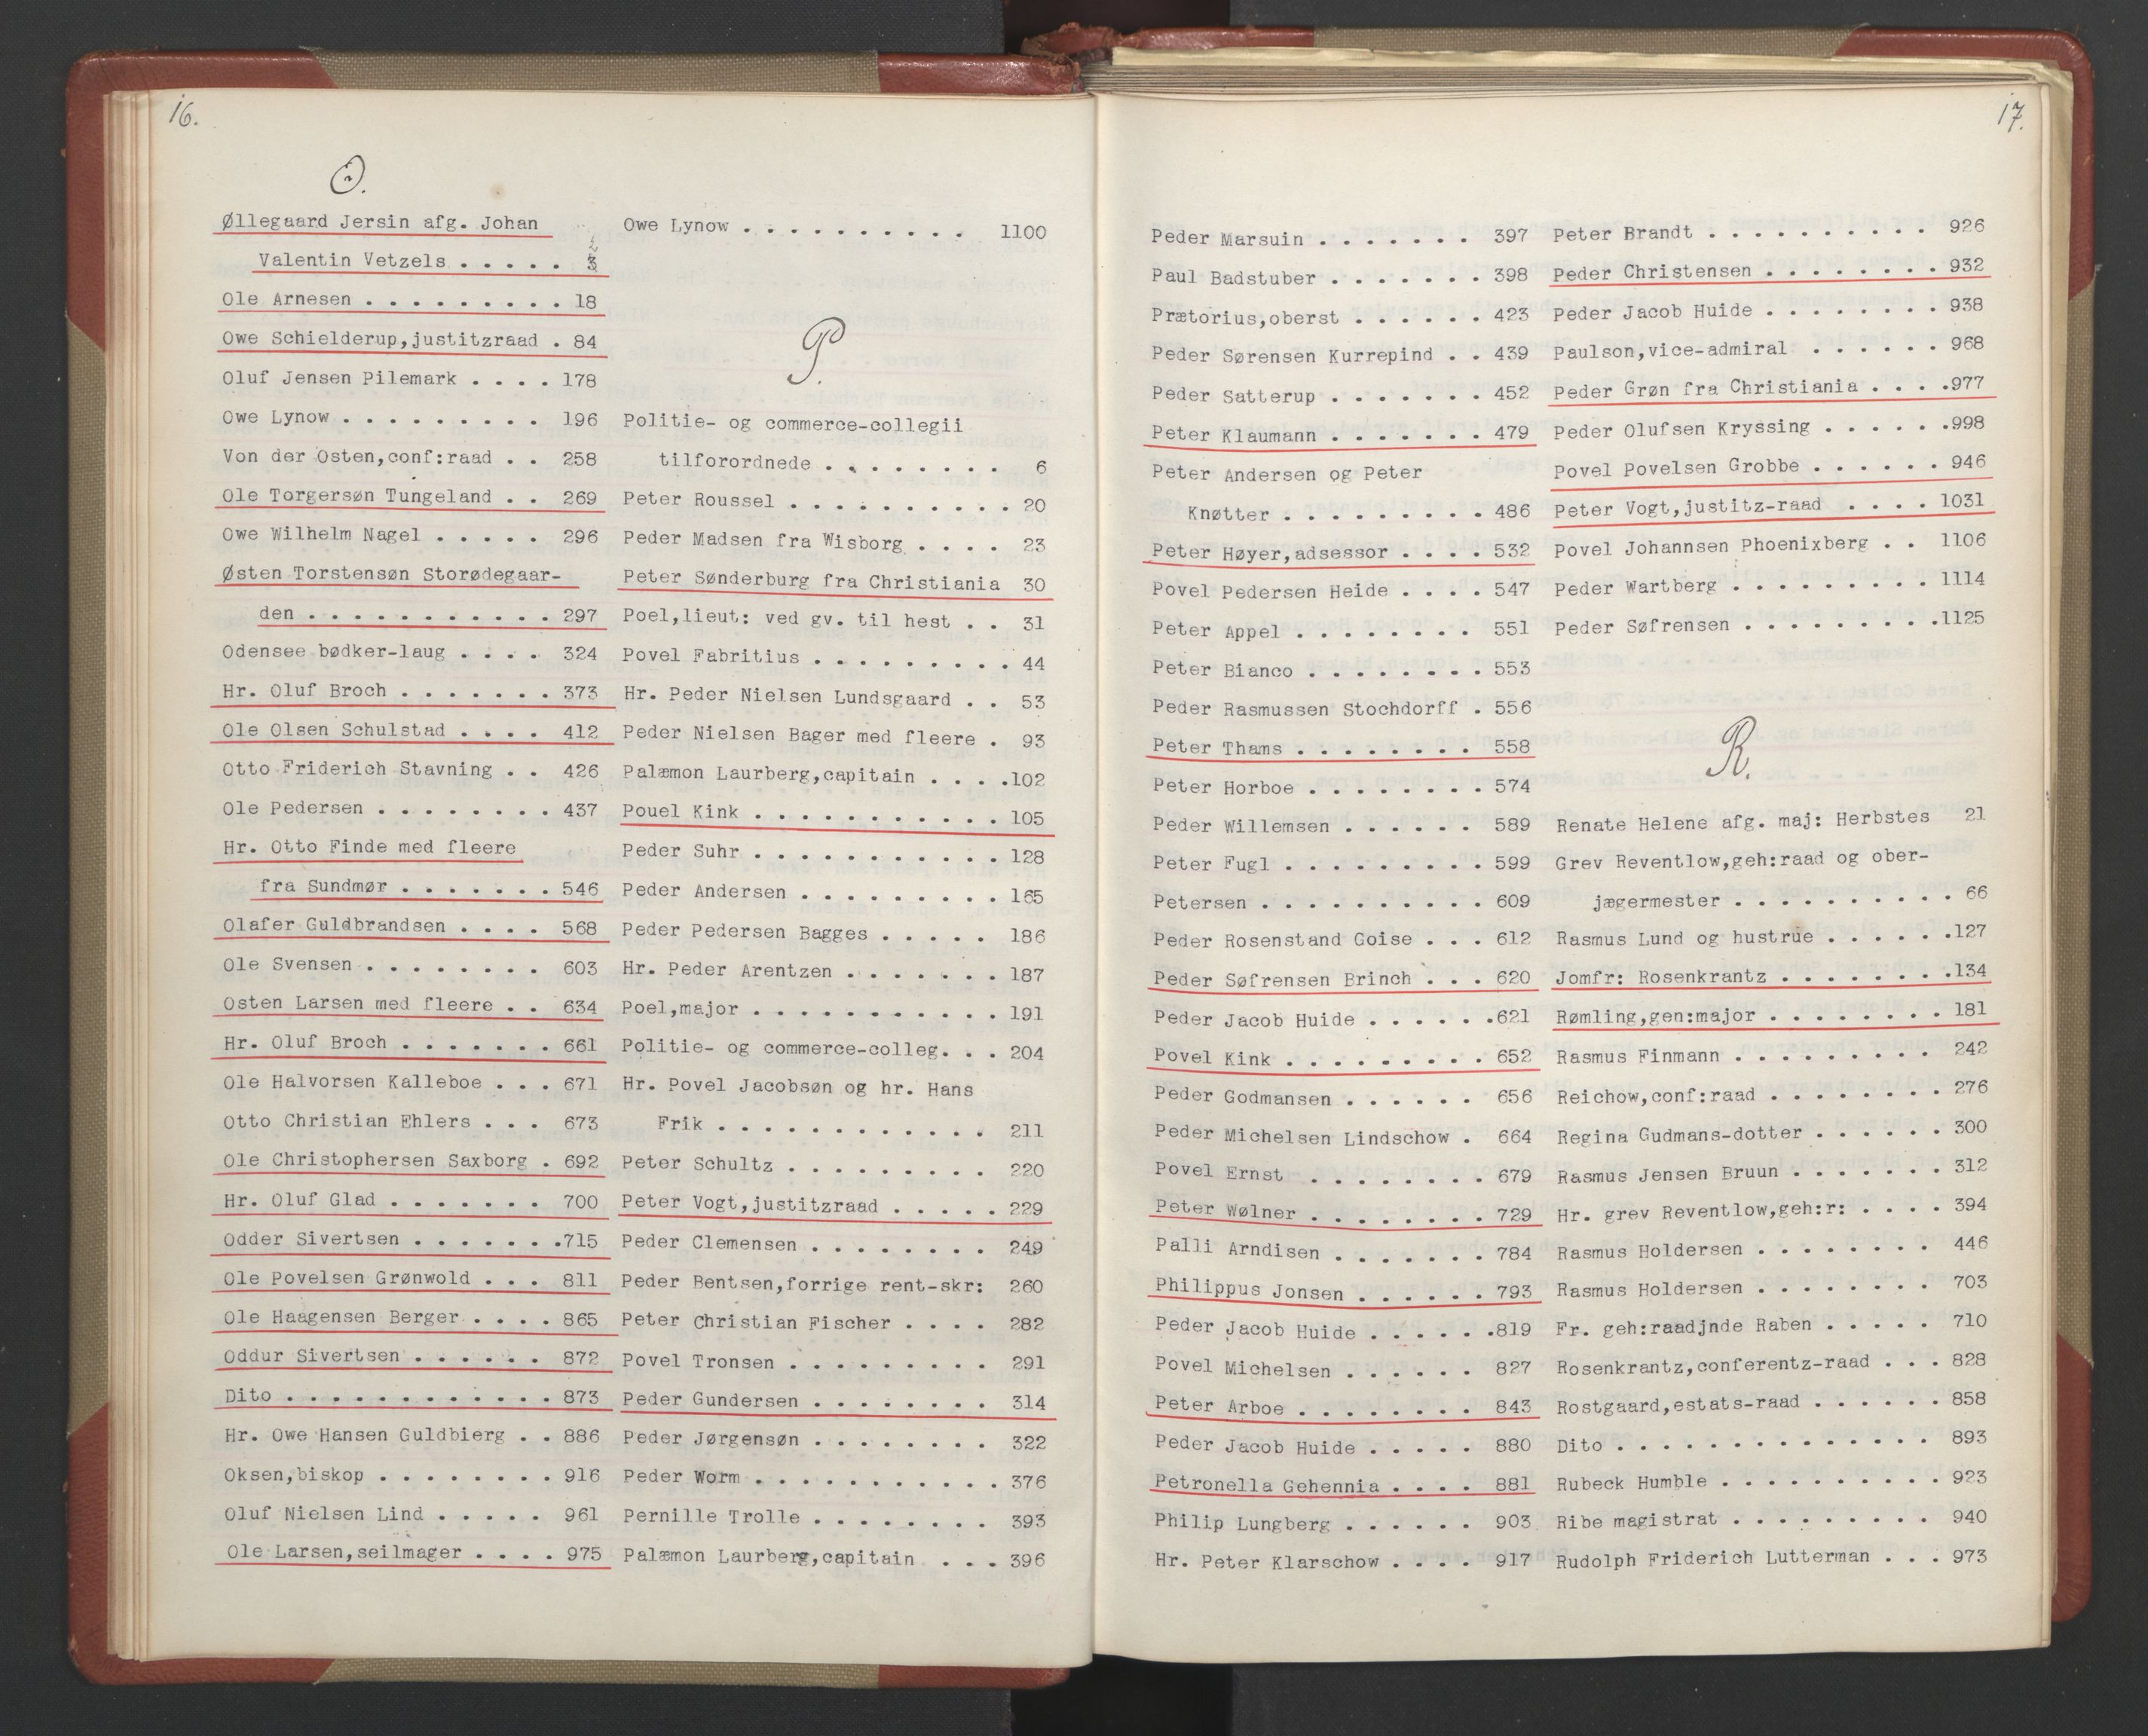 16.
O.
Øllegaard Jersin afg. Johan
Valentin Vetzels . . . . . 3
Ole Arnesen . . . . . . . . . 18
Owe Schielderup,justitzraad . 84
Oluf Jensen Pilemark . . . . 178
Owe Lynow . . . . . . . . . 196
Von der Osten,conf:raad . . 258
Ole Torgersøn Tungeland . . 269
Owe Wilhelm Nagel . . . . . 296
Østen Torstensøn Storødegaar-
den . . . . . . . . . . . 297
Odensee bødker-laug . . . . 324
Hr. Oluf Broch . . . . . . . 373
Ole Olsen Schulstad . . . . 412
Otto Friderich Stavning . . 426
Ole Pedersen . . . . . . . . 437
Hr. Otto Finde med fleere
fra Sundmør . . . . . . . 546
Olafer Guldbrandsen . . . . 568
Ole Svensen . . . . . . . . 603
Osten Larsen med fleere . . 634
Hr. Oluf Broch . . . . . . . 661
Ole Halvorsen Kalleboe . . . 671
Otto Christian Ehlers . . . 673
Ole Christophersen Saxborg . 692
Hr. Oluf Glad . . . . . . . 700
Odder Sivertsen . . . . . . .715
Ole Povelsen Grønwold . . . 811
Ole Haagensen Berger . . . . 865
Oddur Sivertsen . . . . . . 872
Dito . . . . . . . . . . . . 873
Hr. Owe Hansen Guldbierg . . 886
Oksen,biskop . . . . . . . . 916
Oluf Nielsen Lind . . . . . 961
Ole Larsen,seilmager . . . . 975
Owe Lynow . . . . . . . . . . 1100
P.
Politie- og commerce-collegii
tilforordnede . . . . . . . . 6
Peter Roussel . . . . . . . . . . 20
Peder Madsen fra Wisborg . . . . 23
Peter Sønderburg fra Christiania 30
Poel,lieut: ved gv. til hest . . 31
Povel Fabritius . . . . . . . . . 44
Hr. Peder Nielsen Lundsgaard . . 53
Peder Nielsen Bager med fleere . 93
Palæmon Laurberg,capitain . . . .102
Pouel Kink . . . . . . . . . . . 105
Peder Suhr . . . . . . . . . . . 128
Peder Andersen . . . . . . . . . 165
Peder Pedersen Bagges . . . . . 186
Hr. Peder Arentzen . . . . . . . 187
Poel,major . . . . . . . . . . . 191
Politie- og commerce-colleg. . . 204
Hr. Povel Jacobsøn og hr. Hans
Frik . . . . . . . . . . . . 211
Peter Schultz . . . . . . . . . 220
Peter Vogt,justitzraad . . . . . 229
Peder Clemensen . . . . . . . . 249
Peder Bentsen,forrige rent-skr: 260
Peter Christian Fischer . . . . 282
Povel Tronsen . . . . . . . . . 291
Peder Gundersen . . . . . . . . 314
Peder Jørgensøn . . . . . . . . 322
Peder Worm . . . . . . . . . . . 376
Pernille Trolle . . . . . . . . 393
Palæmon Laurberg,capitain . . . 396
17.
Peder Marsuin . . . . . . . 397
Paul Badstuber . . . . . . . 398
Prætorius,oberst . . . . . . 423
Peder Sørensen Kurrepind . . 439
Peder Satterup . . . . . . . 452
Peter Klaumann . . . . . . . 479
Peter Andersen og Peter
Knøtter . . . . . . . . . 486
Peter Høyer,adsessor . . . . 532
Povel Pedersen Heide . . . . 547
Peter Appel . . . . . . . . 551
Peter Bianco . . . . . . . . 553
Peder Rasmussen Stochdorff . 556
Peter Thams . . . . . . . . 558
Peter Horboe . . . . . . . . 574
Peder Willemsen . . . . . . 589
Peter Fugl . . . . . . . . . 599
Petersen . . . . . . . . . . 609
Peder Rosenstand Goise . . . 612
Peder Søfrensen Brinch . . . 620
Peder Jacob Huide . . . . . .621
Povel Kink . . . . . . . . . 652
Peder Godmansen . . . . . . 656
Peder Michelsen Lindschow . 664
Povel Ernst . . . . . . . . 679
Peter Wølner . . . . . . . . 729
Palli Arndisen . . . . . . . 784
Philippus Jonsen . . . . . . 793
Peder Jacob Huide . . . . . .819
Povel Michelsen . . . . . . 827
Peter Arboe . . . . . . . . 843
Peder Jacob Huide . . . . . 880
Petronella Gehennia . . . . 881
Philip Lungberg . . . . . . 903
Hr. Peter Klarschow . . . . 917
Peter Brandt . . . . . . . . . . 926
Peder Christensen . . . . . . . . 932
Peder Jacob Huide . . . . . . . . 938
Paulson,vice-admiral . . . . . . 968
Peder Grøn fra Christiania . . . .977
Peder Olufsen Kryssing . . . . . .998
Povel Povelsen Grobbe . . . . . . 946
Peter Vogt,justitz-raad . . . . 1031
Povel Johannsen Phoenixberg . . 1106
Peder Wartberg . . . . . . . . . 1114
Peder Søfrensen . . . . . . . . .1125
R.
Renate Helene afg. maj: Herbstes 21
Grev Reventlow,geh:raad og ober-
jægermester . . . . . . . . . . 66
Rasmus Lund og hustrue . . . . . .127
Jomfr: Rosenkrantz . . . . . . . .134
Rømling,gen:major . . . . . . . . 181
Rasmus Finmann . . . . . . . . . 242
Reichow,conf:raad . . . . . . . . 276
Regina Gudmans-dotter . . . . . . 300
Rasmus Jensen Bruun . . . . . . . 312
Hr. grev Reventlow,geh:r: . . . . 394
Rasmus Holdersen . . . . . . . . 446
Rasmus Holdersen . . . . . . . . 703
Fr. geh:raadjnde Raben . . . . . 710
Rosenkrantz,conferentz-raad . . . 828
Rostgaard,estats-raad . . . . . . 858
Dito . . . . . . . . . . . . . . 893
Rubeck Humble . . . . . . . . . . 923
Ribe magistrat . . . . . . . . . 940
Rudolph Friderich Lutterman . . . 973